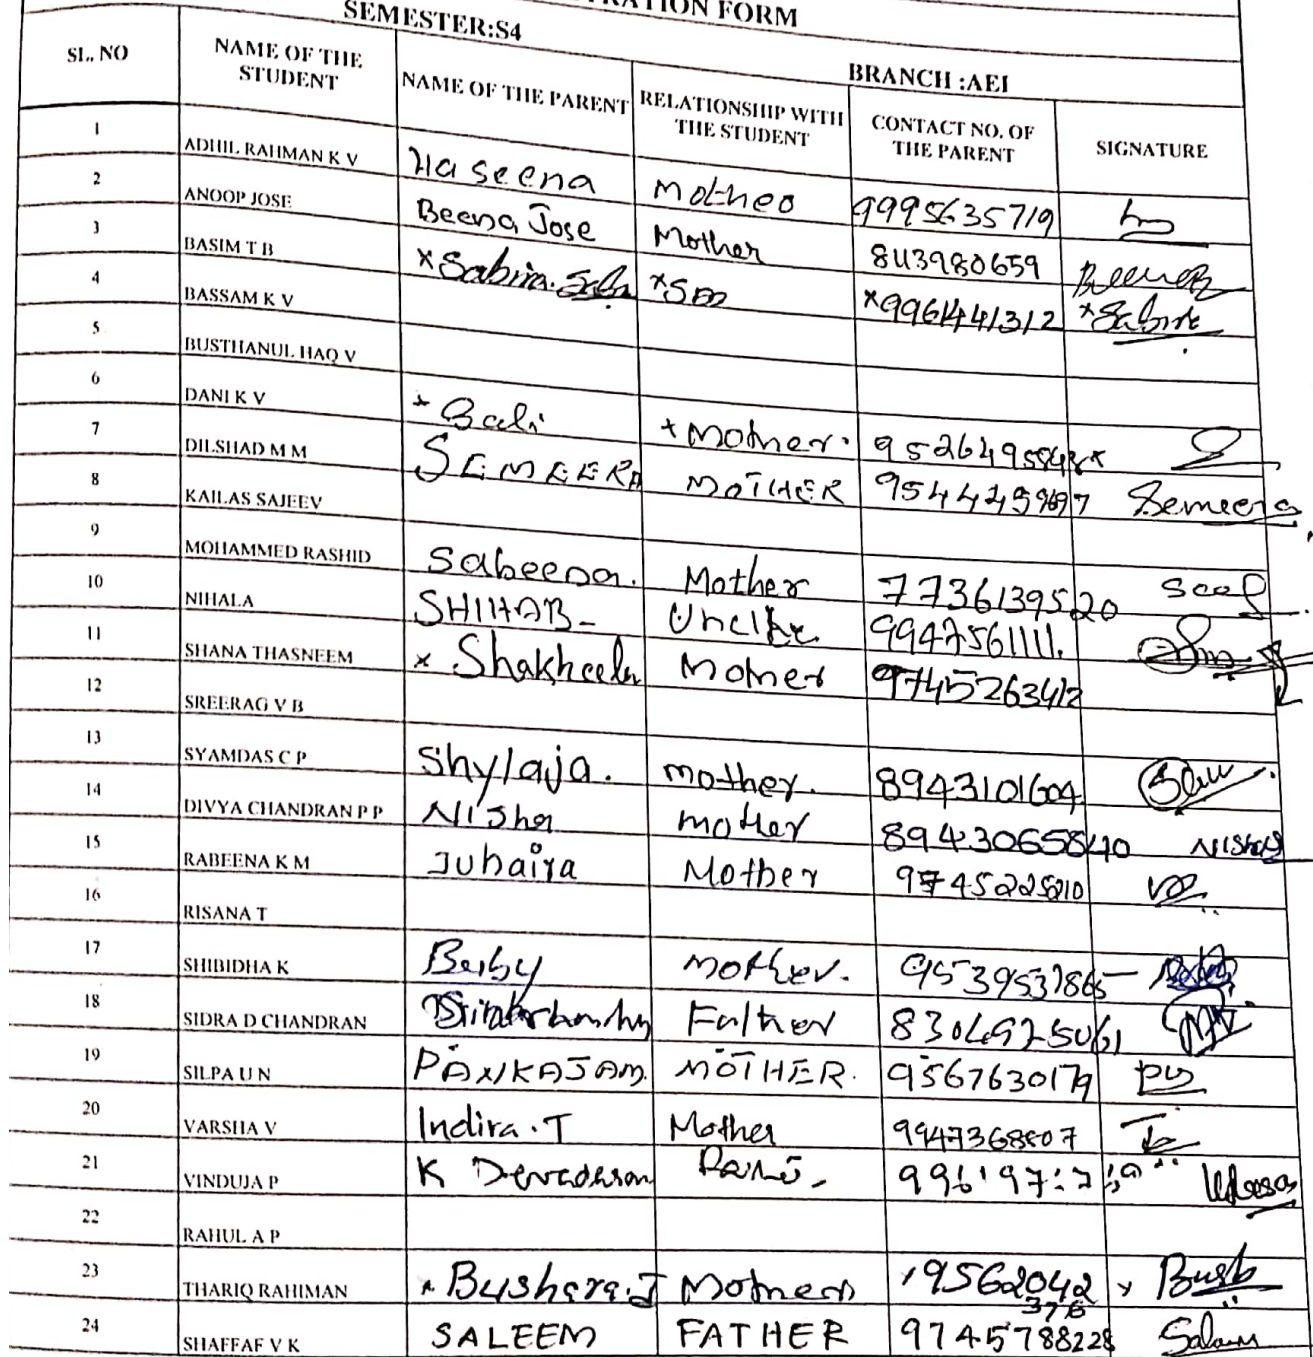 FORM
SEMESTER:S4
BRANCH :AEI
SL. NO NAME OF THE STUDENT NAME OF THE PARENT RELATIONSHIP WITH THE STUDENT CONTACT NO. OF THE PARENT SIGNATURE
1 ADHIL RAHMAN K V Haseena Mother 9995635719
2 ANOOP JOSE Beena Jose Mother 8113980659
3 BASIM T B ×Sabria. ×9961441312
4 BASSAM K V
5 BUSTHANUL HAQ V
6 DANI K V Mother.
7 DILSHAD M M SEMEERA MOTHER Semeera
8 KAILAS SAJEEV
9 MOHAMMED RASHID Sabeena. Mother 7736139520
10 NIHALA SHIHAB Uncle 9947561111.
11 SHANA THASNEEM × Shakheela Mother 9745263412
12 SREERAG V B
13 SYAMDAS C P Shylaja. mother. 8943101604
14 DIVYA CHANDRAN P P Nisha mother 8943065840 Nisha
15 RABEENA K M Juhaira Mother 9745225210
16 RISANA T
17 SHIBIDHA K Beiby mother. 9539537865
18 SIDRA D CHANDRAN Father 8304975061
19 SILPA U N PANKAJAM. MOTHER. 9567630179
20 VARSHA V Indira.T Mother 9947368807
21 VINDUJA P K Devadasan
22 RAHUL A P
23 THARIQ RAHIMAN × Bushara.J Mother 9562042 376
24 SHAFFAF V K SALEEM FATHER 9745788228 Salam